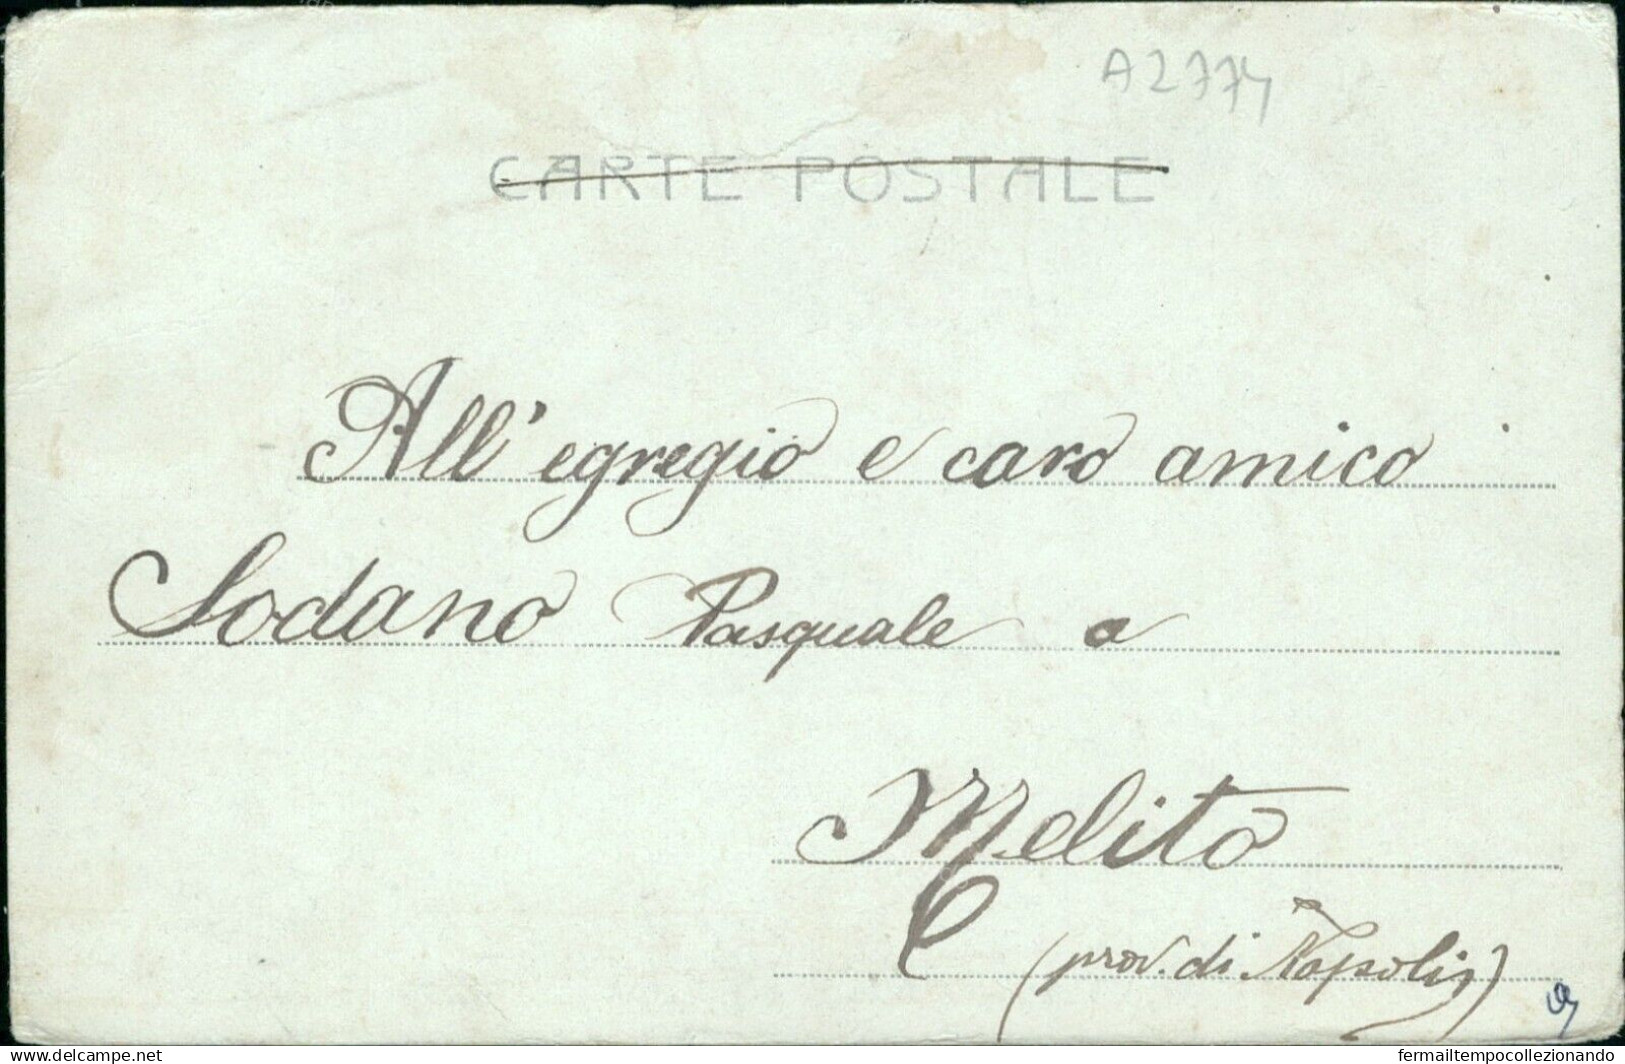 A2774
CARTE POSTALE
All' egregio e caro amico
Sodano Pasquale a
Melito
(prov. di Napoli)
fermailtempocollezionando